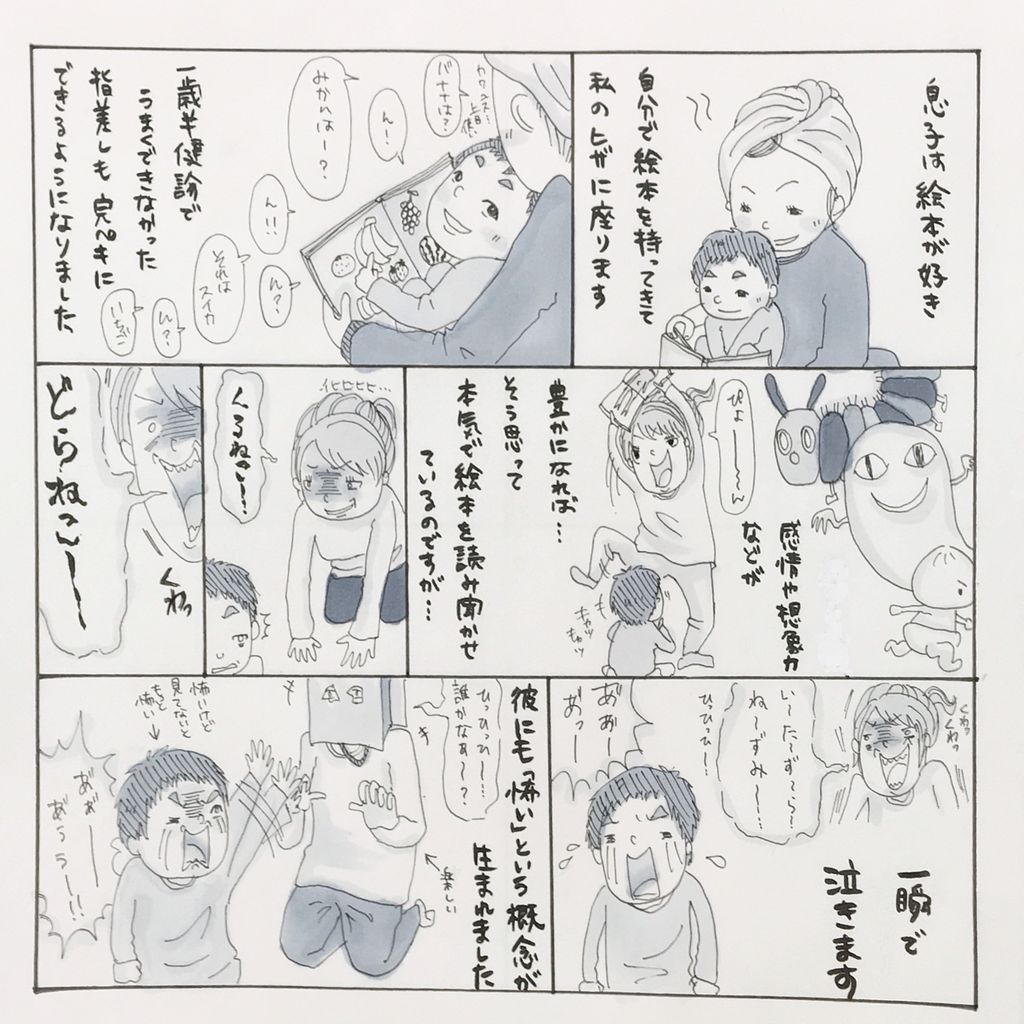 息子は絵本が好き
自分で絵本を持ってきて
私のヒザに座ります
バナナは?
ん!
みかんはー?
ん!!
それは
スイカ
ん?
ん?
いちご
一歳半健診で
うまくできなかった
指差しも完ペキに
できるようになりました
感情や想像力
などが
ぴよーーーん
豊かになれば…
そう思って
本気で絵本を読み聞かせ
ているのですが…
キャッ
キャッ
イヒヒヒヒ…
くるねこー…
どらねこーー
くわっ
くわっ
くわっ
い〜た〜ずら〜
ね〜ずみ〜…
ひっひっひー…
あぁぁー
あっー
一瞬で
泣きます
彼にも「怖い」という概念が
生まれました
ひっひっひー…
誰かなぁ〜?
楽しい
怖いけど
見てないと
もっと
怖い
あぁぁー
あぅぅー!!